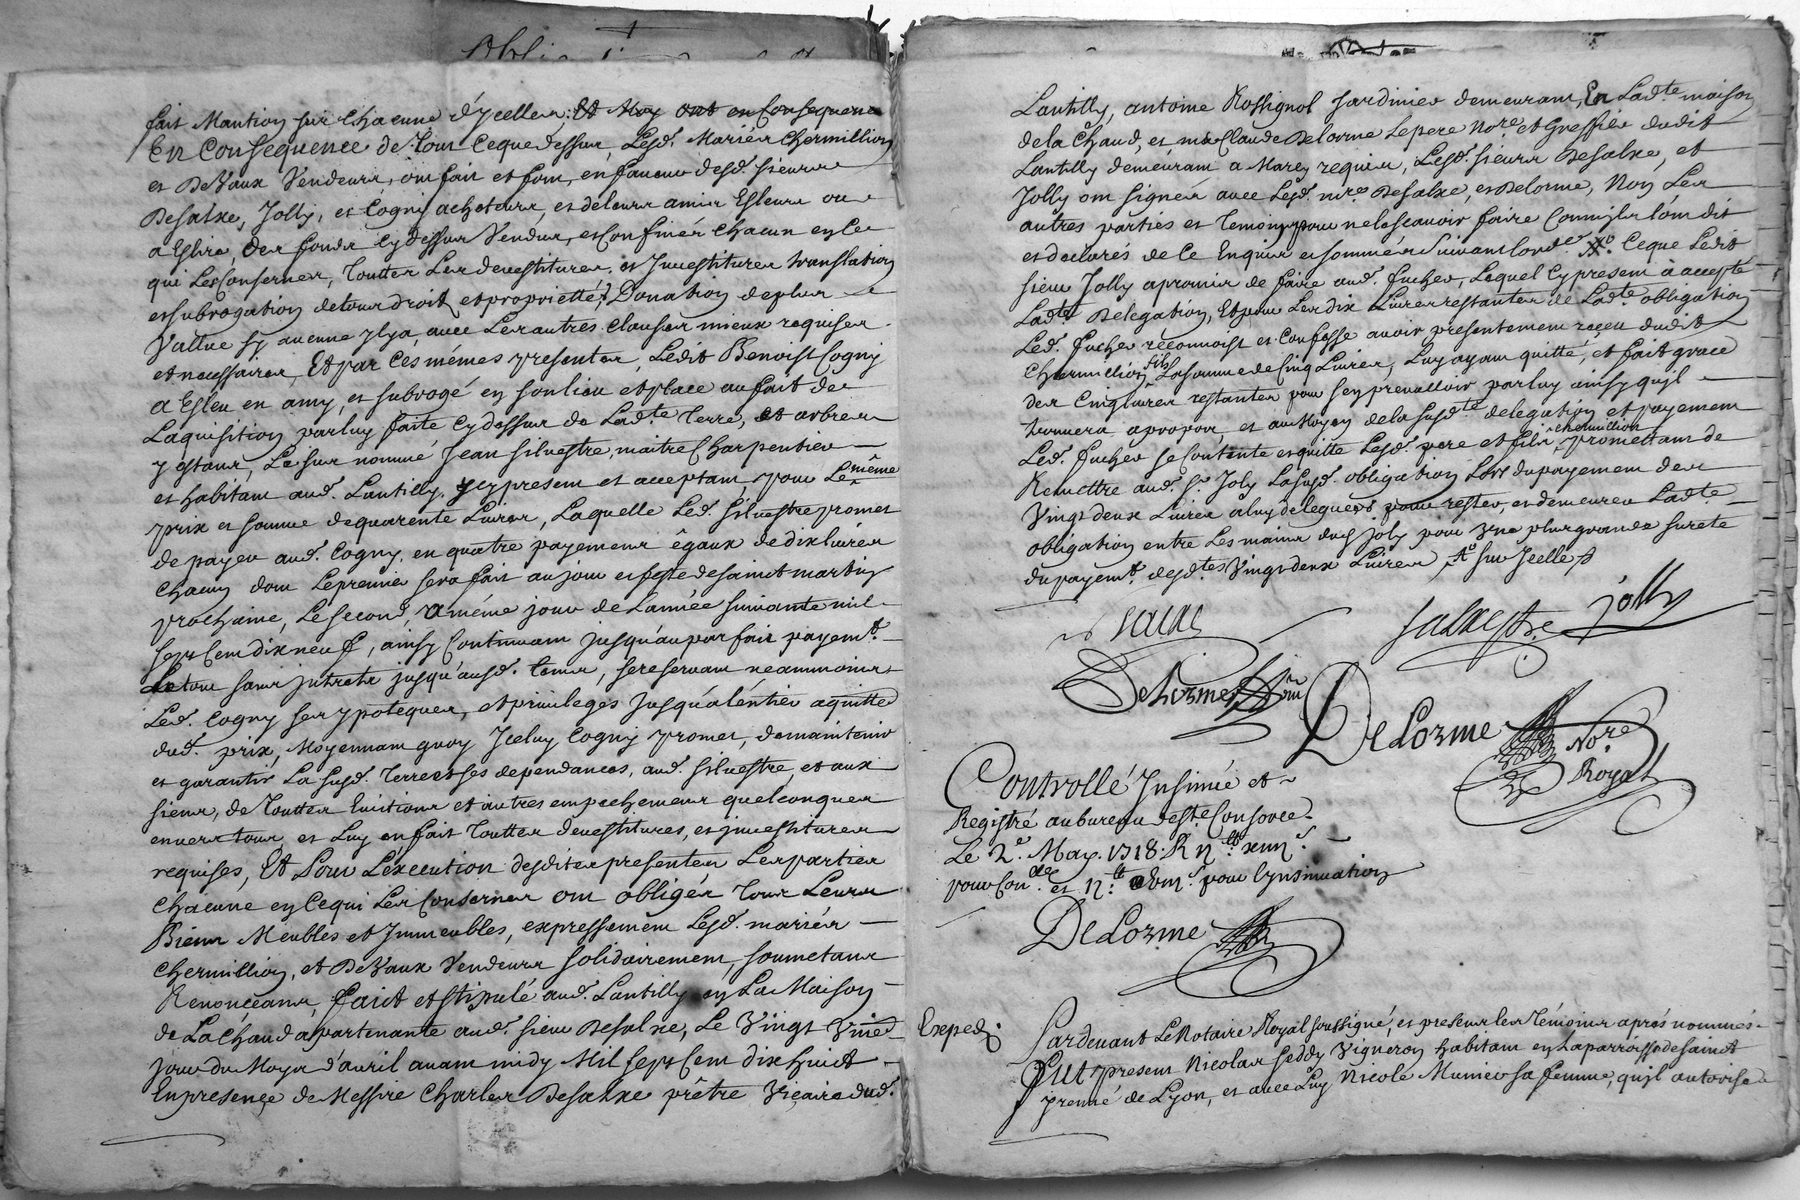 fait Mantion sur Chacune d'ycelles; Et Moy ont en Consequence
En Consequence de tout Ceque dessus, Lesd. Mariés Chermillion
et DeVaux Vendeurs, ont fait et font, en faveur desd. sieurs
Desalxe, Jolly, et Cogny acheteurs, et de leurs amis Esleus ou
a Eslire, des fonds Cy dessus Vendus, et Confinés Chacun en Ce
qui Les Conserner, Touttes Les devestitures, et Investitures translation
et subrogation de tous droit et proprietté, Donation de plus
Vallue sy aucune y'lya, avec Les autres Clauses mieux requises
et necessaires, Et par Ces mémes presentes, Ledit Benoist Cogny
a Esleu en amy, et subrogé en son lieu et place au fait de
Laquisition par luy faite Cy dessus de Ladte. Terre, et arbres
y estans, Le sus nommé Jean Silvestre, maitre Charpentier
et habitant aud. Lantilly, ycy present et acceptant, pour Le même
prix et somme de quarente Livres, Laquelle Led. Silvestre promet
de payer aud. Cogny, en quatre payemens êgaux de dix livres
Chacun dont Le premier sera fait au jour et feste de saint martin
prochaine, Le second, a méme jour de L'année suivante mil
sept Cent dix neuf, ainsy Continuant jusqu'au parfait payemt.
Le tout sans jntrets jusqu'ausd. temps, se reservant neammoins
Led. Cogny ses ypoteques, et privileges jusqu'a l'entier aquitté
dud. prix, Moyennant quoy Iceluy Cogny promet, de maintenir
et garantir La susd. Terre et ses dependances, aud. silvestre, et aux
siens, de Touttes Evictions et autres empechemens quelconques
envers tous, et Luy en fait Touttes devestitures, et jnvestitures
requises, Et Pour L'execution desdites presentes Les parties
Chacune en Ce qui Les Conserner ont obligés Tous Leurs
Biens Meubles et Immeubles, expressement Lesd. mariés
Chermillion, et DeVaux Vendeurs solidairement, soumetans
Renonceans, fait et stipulé aud. Lantilly en La Maison
de La Chaud apartenante aud. sieur Desalxe, Le Vingt Vnie.
jour du Moys d'avril avant midy Mil sept Cent dix huict
En presence de Messire Charles Desalxe prêtre Viçaire dud.
Lantilly, antoine Rossignol jardinier demeurant, En Ladte. maison
de la Chaud, et me. Claude Delorme Le pere Nore. et Greffier dudit
Lantilly demeurant a Marey requier, Lesd. sieurs Desalxe, et
Jolly ont signés avec Lesd. mres. Desalxe, et Delorme, Non Les
autres parties et Temoins pour ne le scavoir faire Comm'ils l'ont dit
et declarés de Ce Enquis et sommés suivant l'ordce. Ce que Ledit
sieur Jolly a promis de faire aud. fucher, Lequel Cy present à accepté
Ladte. Delegation, Et pour Les dix Livres restantes de Ladte. obligation
Led. fucher réconnoist et Confesse avoir presentement reçeu dudit
Chermillion fils La somme de Cinq Livres, Luy ayant quitté, et fait grace
des Cinq livres restantes pour s'en prevalloir par luy ainsy qu'jl
trouvera apropos et au Moyen de la susdte. delegation et payement
Led. fucher se Contente et quitte Lesd. pere et fils Chermillion, promettant de
Remettre aud. sr. Joly La susd. obligation Lors du payement des
Vingt deux Livres a luy delegueés pour rester, et demeurer Ladte.
obligation entre Les mains dud. Joly pour Vne plus grande sureté
du payemt. desdtes. Vingt deux Livres
salxe
salxe ptre.
jolly
DeLorme
DeLorme
Nore.
Royal
Controllé Insinué et
Registré au bureau de ste Consorce
Le 2e. May. 1718. R
pour Con.lle et pour L'ynsinuation
DeLorme
Exped.
Pardevant Le Notaire Royal soussigné, et presens les Témoins aprés nommés
Fut present Nicolas feddy Vigneron habitant en La parroisse de saint
yrenné de Lyon, et avec Luy Nicole Munier sa femme, qu'jl autorise